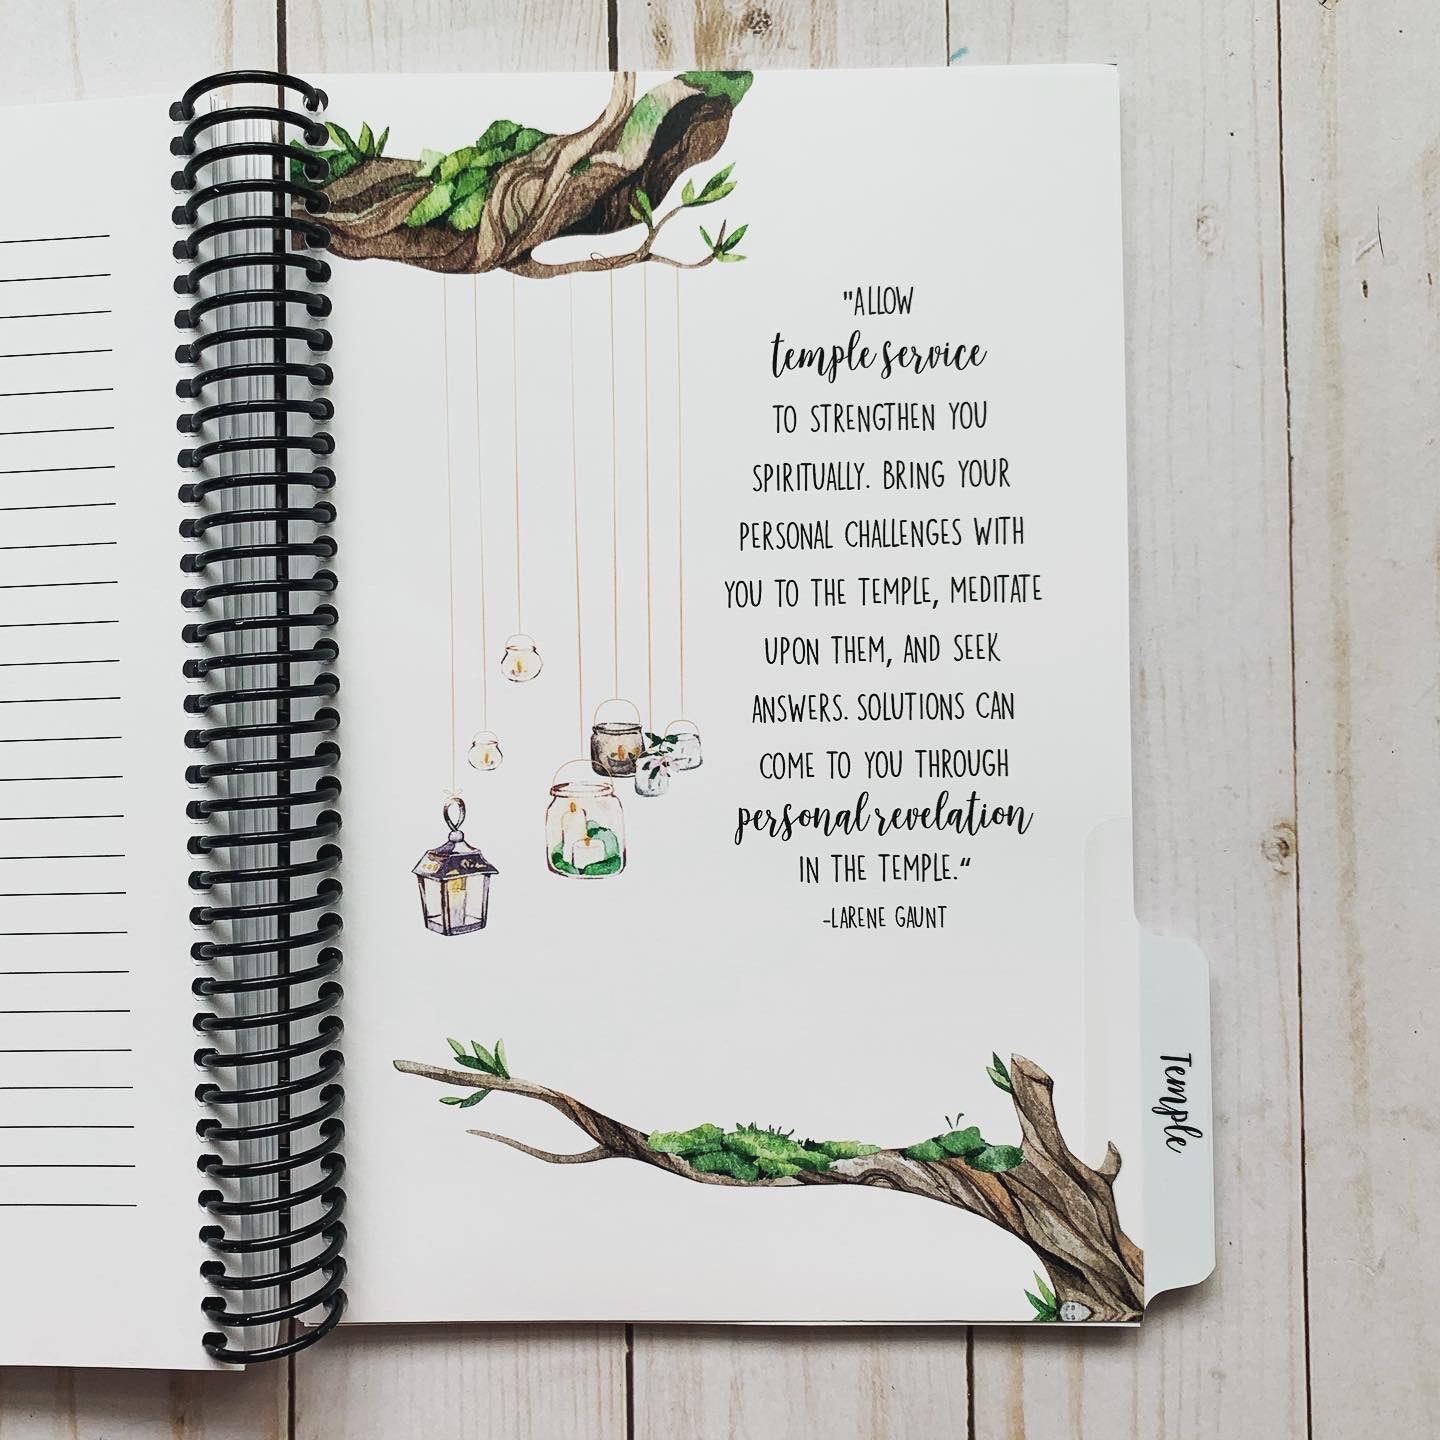 "ALLOW
temple service
TO STRENGTHEN YOU
SPIRITUALLY. BRING YOUR
PERSONAL CHALLENGES WITH
YOU TO THE TEMPLE, MEDITATE
UPON THEM, AND SEEK
ANSWERS. SOLUTIONS CAN
COME TO YOU THROUGH
personal revelation
IN THE TEMPLE."
-LARENE GAUNT
Temple